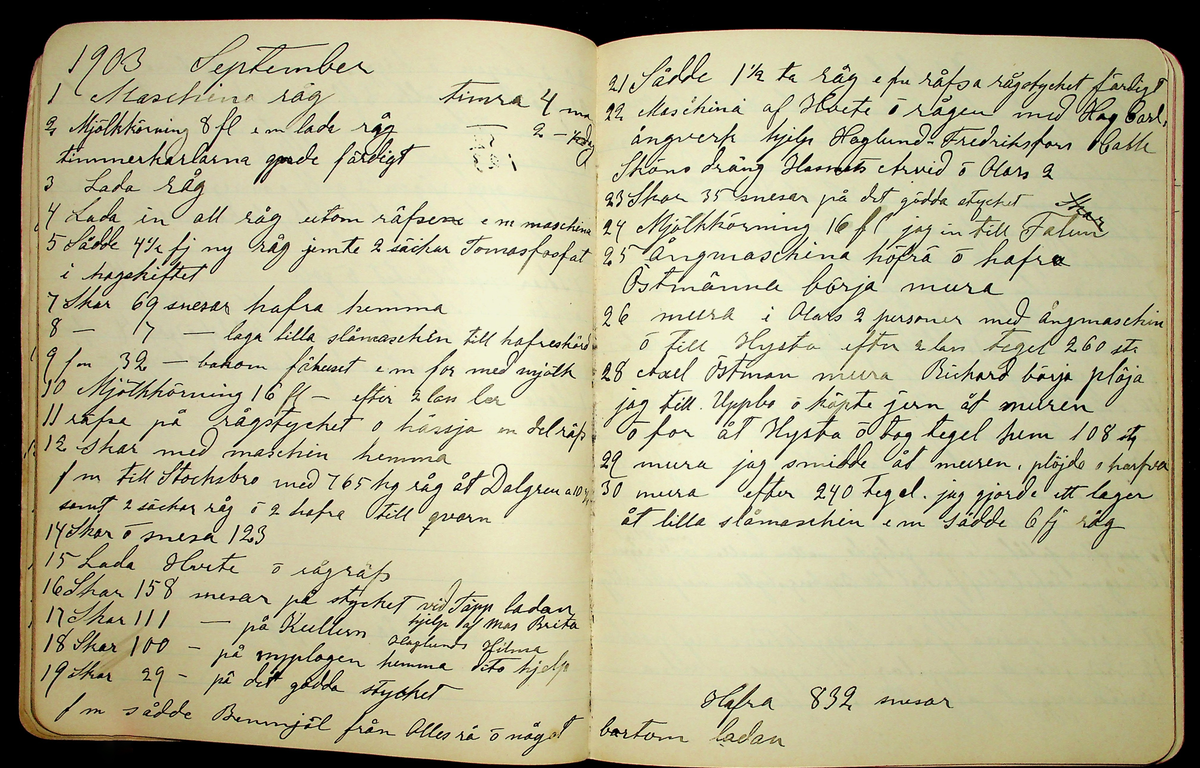 1903 September
1 Maschina råg timra 4 ma
2 Mjölkkörning 8 fl e m lada råg 2 -
timmerkarlarna gjorde färdigt
3 Lada råg
4 Lada in all råg utom räfsen e m maschina
5 Sådde 4½ fj ny råg jemte 2 säckar Tomasfosfat
i hagskiftet
7 Skar 69 snesar hafra hemma
8 — 7 — laga lilla slåmaschin till hafreskörd
9 fm 32 — bakom fähuset e m for med mjölk
10 Mjölkkörning 16 fl — efter 2 lass ler
11 räfsa på rågstycket o hässja en del räfs
12 skar med maschin hemma
f m till Stocksbro med 765 kg råg åt Dalgren a 10
samt 2 säckar råg ö 2 hafra till qvarn
14 Skar ö snesa 123
15 Lada Hvete ö rågräfs
16 Skar 158 snesar på stycket vid Täpp ladan
17 Skar 111 — på Kullen hjelp af Mas Brita
18 Skar 100 — på nyplogen hemma Haglunds Hilma dito hjelp
19 Skar 29 — på det gödda stycket
f m sådde Benmjöl från Olles rå ö något bortom ladan
21 Sådde 1½ ta råg e fm räfsa rågstycket färdigt
22 Maschina af Hvete ö rågen med Hag Carl,
ångverk hjelp Haglund Fredriksfors
Sköns dräng Arvid ö Olars 2
23 Skar 35 snesar på det gödda stycket Skar
24 Mjölkkörning 16 fl jag in till Falun
25 Ångmaschina höfrö ö hafra
Östmänna börja mura
26 mura i Olars 2 personer med ångmaschin
ö till Hysta efter 2 lass tegel 260 st.
28 Axel Östman mura Richard börja plöja
jag till Uppbo ö köpte jern åt muren
ö for åt Hysta ö tog tegel hem 108 st
29 mura jag smidde åt muren, plöjde o harfva
30 mura efter 240 tegel. jag gjorde ett lager
åt lilla slåmaschin e m sådde 6 fj råg
Hafra 832 snesar